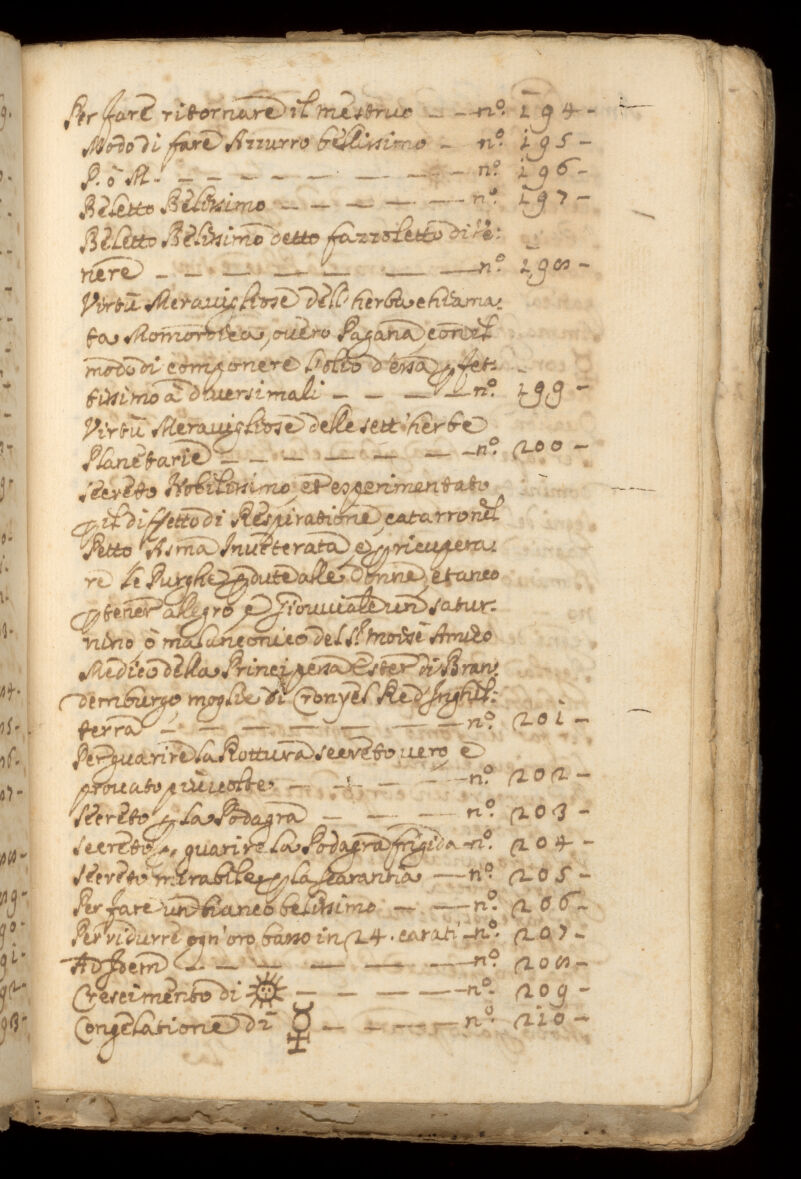 Per fare ritornare il mestruo — — nº. 194 -
Modo di fare Azzurro bellissimo — nº. 195 -
P. o M. — — — — — — — — nº. 196 -
Beletto Belissimo — — — — — nº. 197 -
Beletto Belissimo detto fazzoletto di Ve:
nere — — — — — — — nº. 198 -
Virtù Meravigliose dell'herba chiama:
ta Momordica, overo Pagana con il
modo di componere l'olio d'essa pfet:
tissimo à diversi mali — — — — nº. 199 -
Virtù Meravigliose delle sett'herbe
Planetarie — — — — — — nº. 200 -
Secreto Nobilissimo et esperimentato
p il diffetto di Respiratione, catarro nel
Petto Asma Inveterata e p ricupera:
re le Purghe pdute alle Donne, et anco
p tener allegro, e Giouviale un satur:
nino, ò malanconico del Sr. Moisè Amico
Medico della Principessa Ester di Bran:
demburgo, moglie di Cronyel Re d'Inghil:
terra — — — — — — — nº. 201 -
Per guarire la Rottura secreto vero, e
provato più volte. — — — — nº. 202 -
Secreto p la Podagra — — — nº. 203 -
Secreto p guarire la Podagra frigida - nº. 204 -
Secreto mirabile p la scarantia — nº. 205 -
Per fare un bianco belissimo — — nº. 206 -
Per ridurre ogn'oro basso in 24. carati - nº. 207 -
Ad Idem — — — — — — nº. 208 -
Crescimento di ☉ — — — — — nº. 209 -
Congelatione di ☿ — — — — nº. 210 -